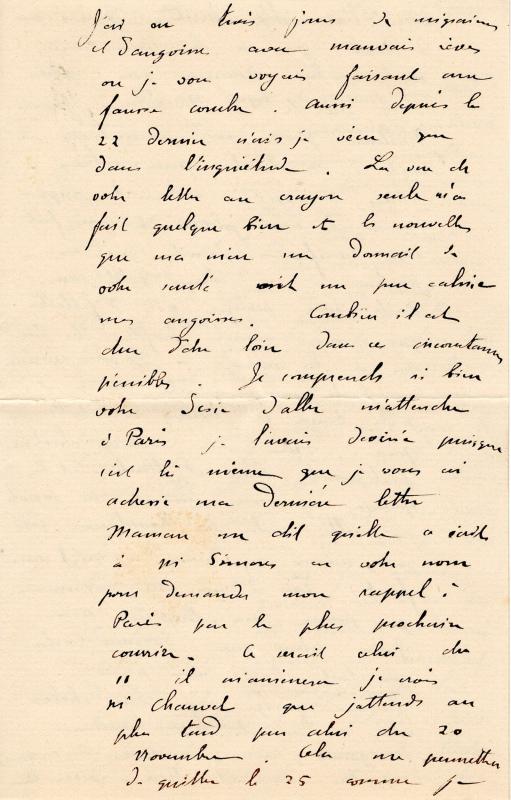 J'ai eu trois jours de migraines
et d'angoisse avec mauvais rêves
où je vous voyais faisant une
fausse couche. Aussi depuis le
22 dernier n'ais je vécu que
dans l'inquiétude. La vue de
votre lettre au crayon seule m'a
fait quelque bien et les nouvelles
que ma mère me donnait de
votre santé ont un peu calmé
mes angoisses. Combien il est
dur d'être loin dans ces circonstances
pénibles. Je comprends si bien
votre désir d'aller m'attendre
à Paris je l'avais deviné puisque
c'est là même que je vous ai
adressé ma dernière lettre
Maman me dit qu'elle a écrit
à Mr Simores en votre nom
pour demander mon rappel à
Paris par le plus prochain
courrier. Ce serait celui du
11 il m'amènera je crois
Mr Chauvel que j'attends au
plus tard par celui du 20
novembre. Cela me permettra
de quitter le 25 comme je